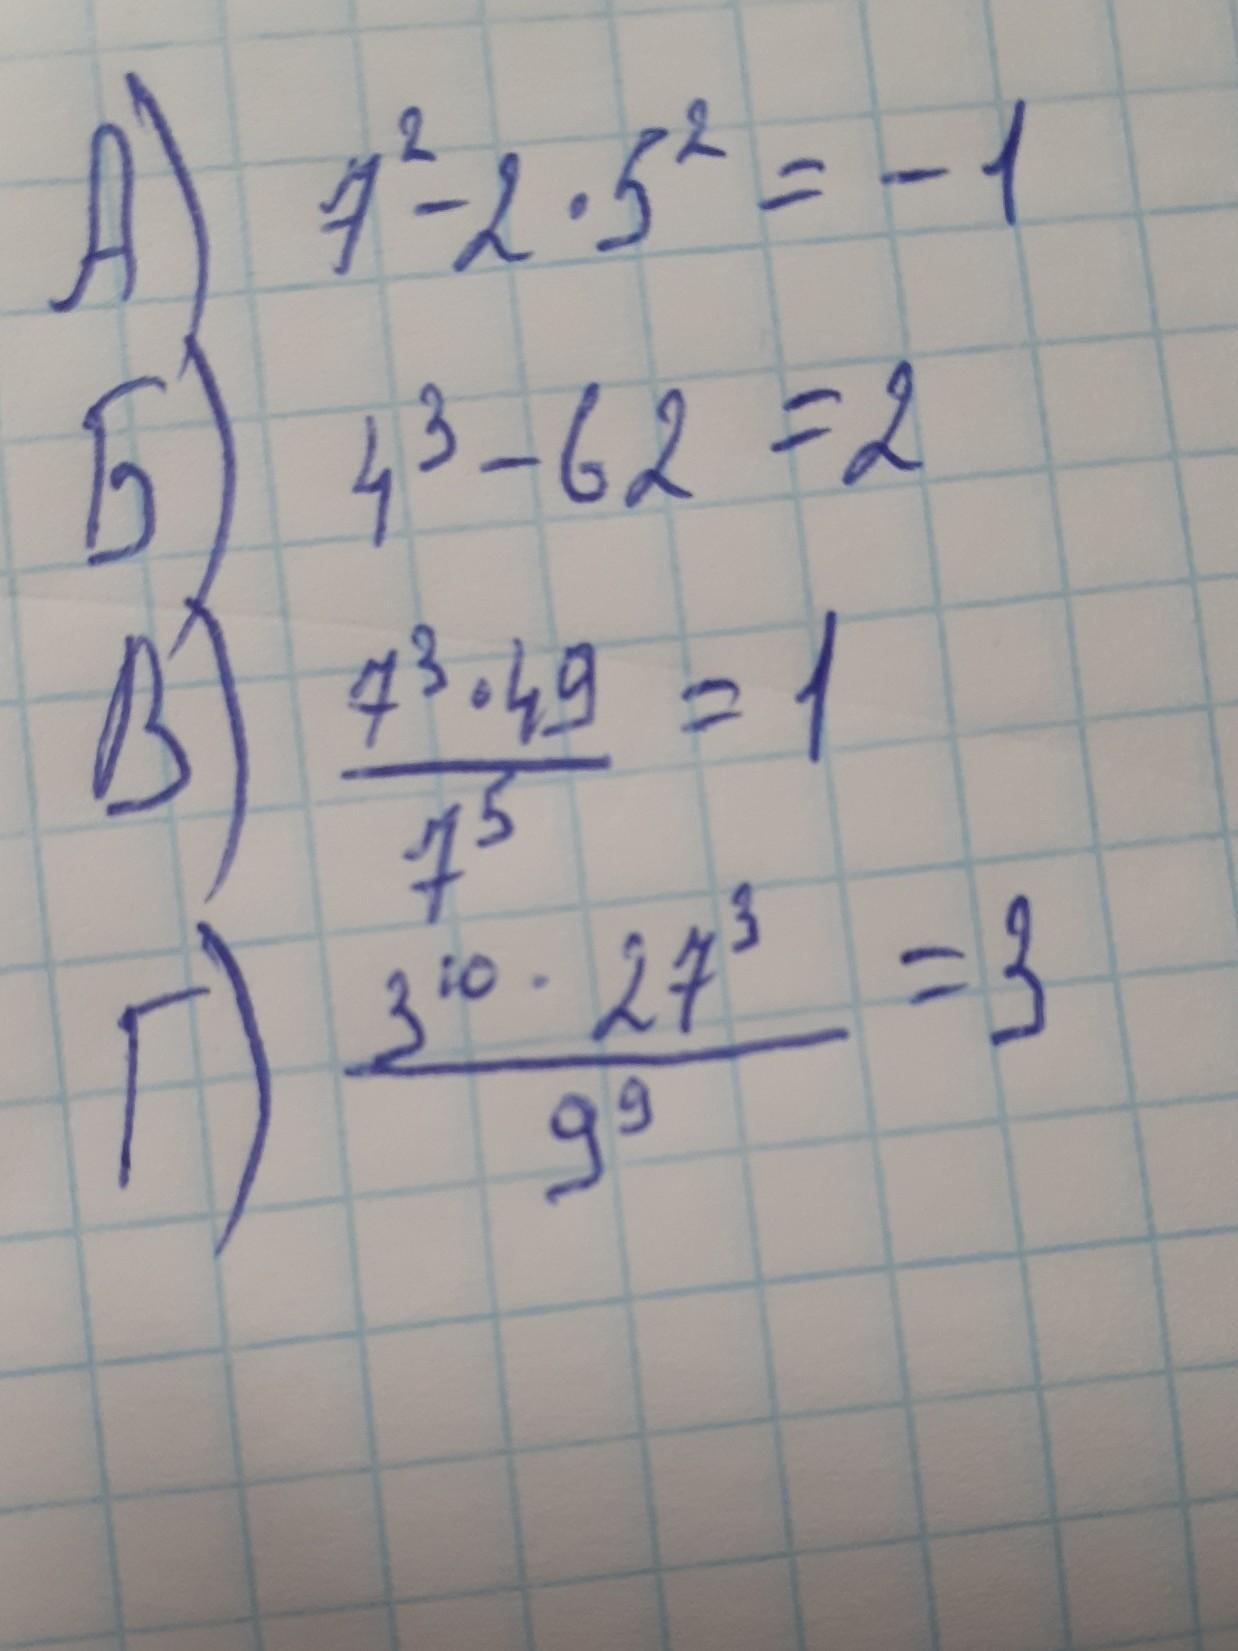 А) 7² - 2 · 5² = - 1
Б) 4³ - 62 = 2
В) 7³ · 49 / 7⁵ = 1
Г) 3¹⁰ · 27³ / 9⁹ = 3